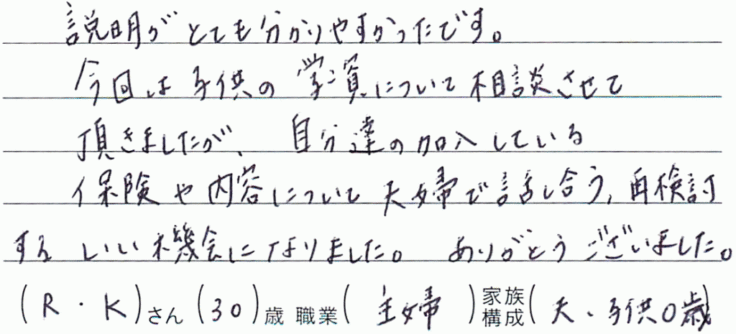 説明がとても分かりやすかったです。
今回は子供の学資について相談させて
頂きましたが、自分達の加入している
保険や内容について夫婦で話し合う、再検討
するいい機会になりました。ありがとうございました。
(R・K)さん(30)歳 職業(主婦)家族構成(夫・子供0歳)